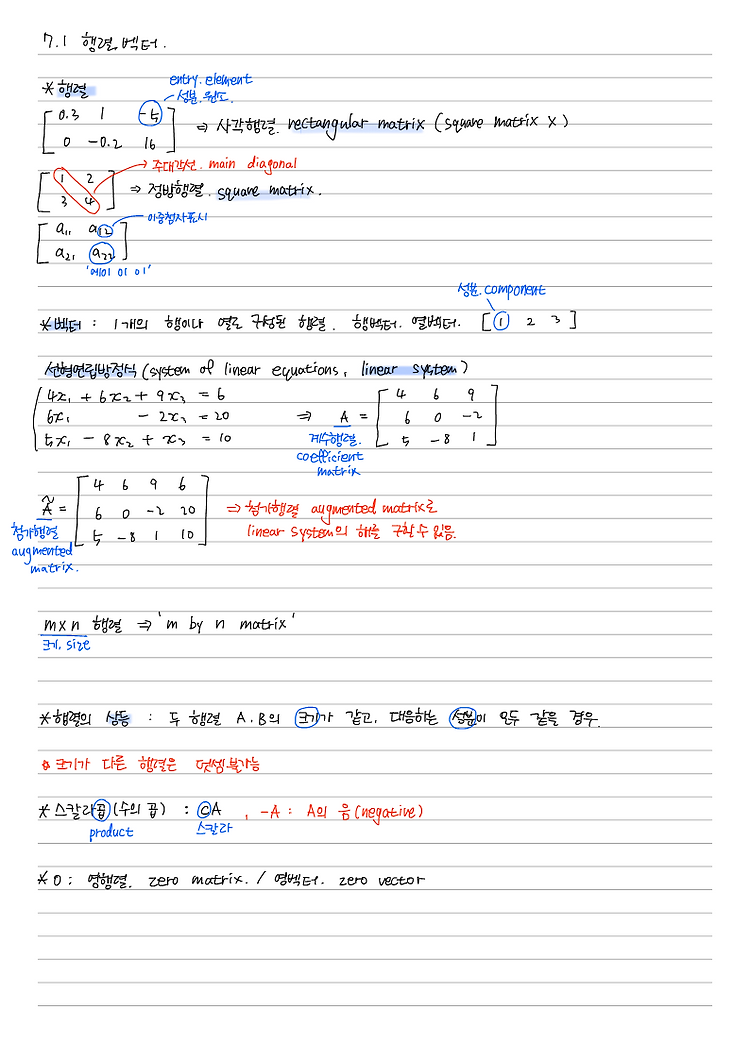 7.1 행렬, 벡터.
entry. element
* 행렬
성분. 원소.
[ 0.3 1 -5
0 -0.2 16 ] ⇒ 사각행렬. rectangular matrix (square matrix x)
주대각선. main diagonal
[ 1 2
3 4 ] ⇒ 정방행렬. square matrix.
이중첨자표시
[ a₁₁ a₁₂
a₂₁ a₂₂ ]
'에이 이 이'
성분. component
* 벡터 : 1개의 행이나 열로 구성된 행렬. 행벡터. 열벡터. [ 1 2 3 ]
선형연립방정식 (system of linear equations, linear system)
4x₁ + 6x₂ + 9x₃ = 6
6x₁ - 2x₃ = 20 ⇒ A = [ 4 6 9
6 0 -2
5x₁ - 8x₂ + x₃ = 10
5 -8 1 ]
계수행렬.
coefficient
matrix
Ã = [ 4 6 9 6
6 0 -2 20
5 -8 1 10 ]
⇒ 첨가행렬 augmented matrix로
linear system의 해를 구할 수 있음.
첨가행렬
augmented
matrix.
m×n 행렬 ⇒ 'm by n matrix'
크기. size
* 행렬의 상등 : 두 행렬 A. B의 크기가 같고, 대응하는 성분이 모두 같을 경우.
크기가 다른 행렬은 덧셈 불가능
* 스칼라곱 (수의 곱) : cA , -A : A의 음 (negative)
product 스칼라
* 0 : 영행렬. zero matrix. / 영벡터. zero vector